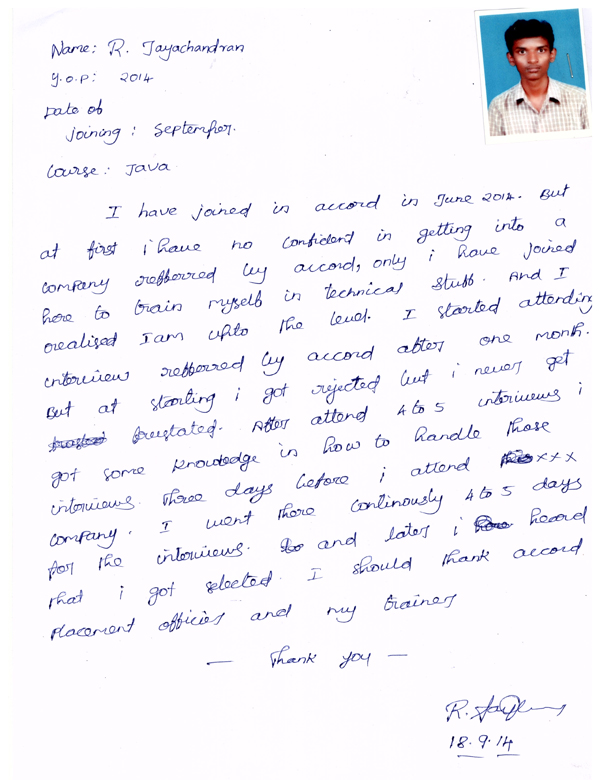 Name: R. Jayachandran
Y.O.P: 2014
Date of
Joining : September.
Course : Java
I have joined in accord in June 2014. But
at first i have no confident in getting into a
company refferred by accord, only i have joined
here to train myself in technical stuff. And I
realised I am upto the level. I started attending
interview refferred by accord after one month.
But at starting i got rejected but i never get
frustated. After attend 4 to 5 interviews i
got some knowledge in how to handle those
interviews. Three days before i attend xxx
company. I went there continously 4 to 5 days
for the interviews. and later i heard
that i got selected. I should thank accord
placement officies and my trainers
— Thank you —
R.
18.9.14